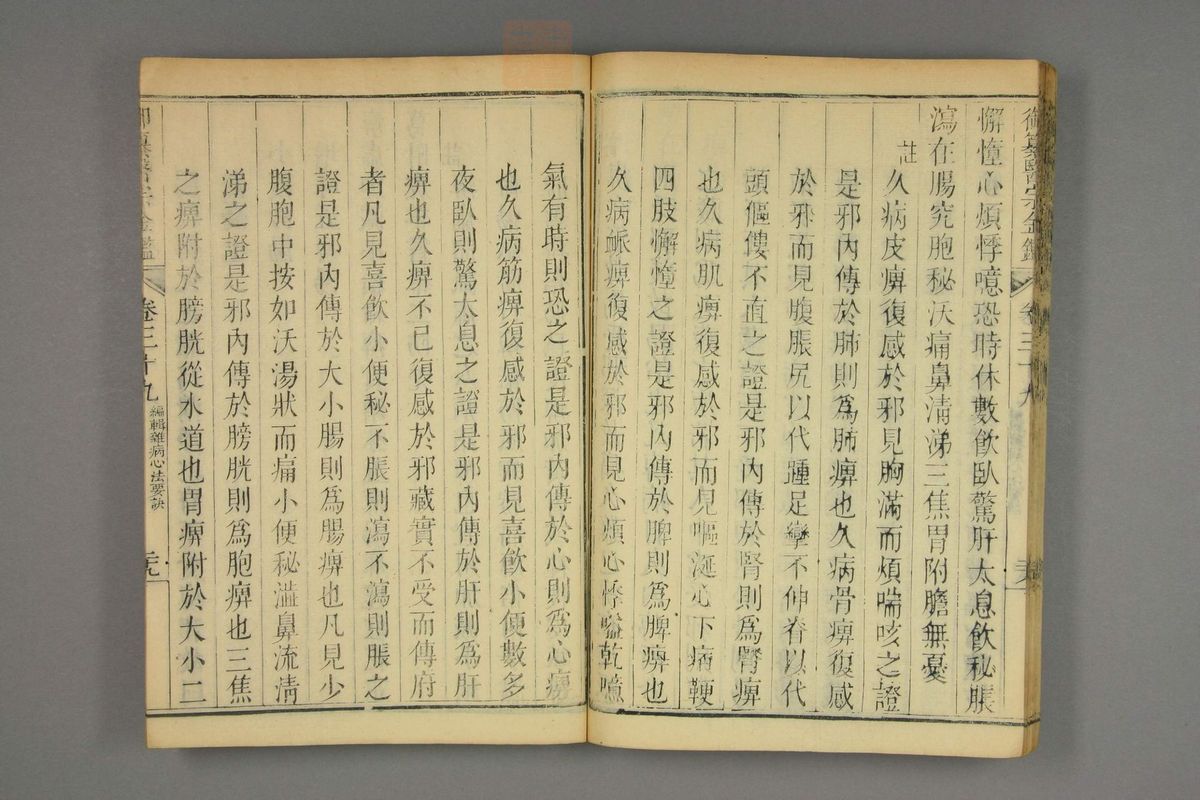 御纂醫宗金鑑 卷三十九
懈憻心煩悸噫恐時休數飲臥驚肝太息飲秘脹
瀉在腸究胞秘沃痛鼻清涕三焦胃附膽無憂
註
久病皮痹復感於邪見胸滿而煩喘咳之證
是邪內傳於肺則爲肺痹也久病骨痹復感
於邪而見腹脹尻以代踵足攣不伸脊以代
頭傴僂不直之證是邪內傳於腎則爲腎痹
也久病肌痹復感於邪而見嘔涎心下痞鞕
四肢懈憻之證是邪內傳於脾則爲脾痹也
久病脈痹復感於邪而見心煩心悸嗌乾噫
氣有時則恐之證是邪內傳於心則爲心痹
也久病筋痹復感於邪而見喜飲小便數多
夜臥則驚太息之證是邪內傳於肝則爲肝
痹也久痹不已復感於邪藏實不受而傳府
者凡見喜飲小便秘不脹則瀉不瀉則脹之
證是邪內傳於大小腸則爲腸痹也凡見少
腹胞中按如沃湯狀而痛小便秘澁鼻流清
涕之證是邪內傳於膀胱則爲胞痹也三焦
之痹附於膀胱從水道也胃痹附於大小二
御纂醫宗金鑑 卷三十九 編輯雜病心法要訣